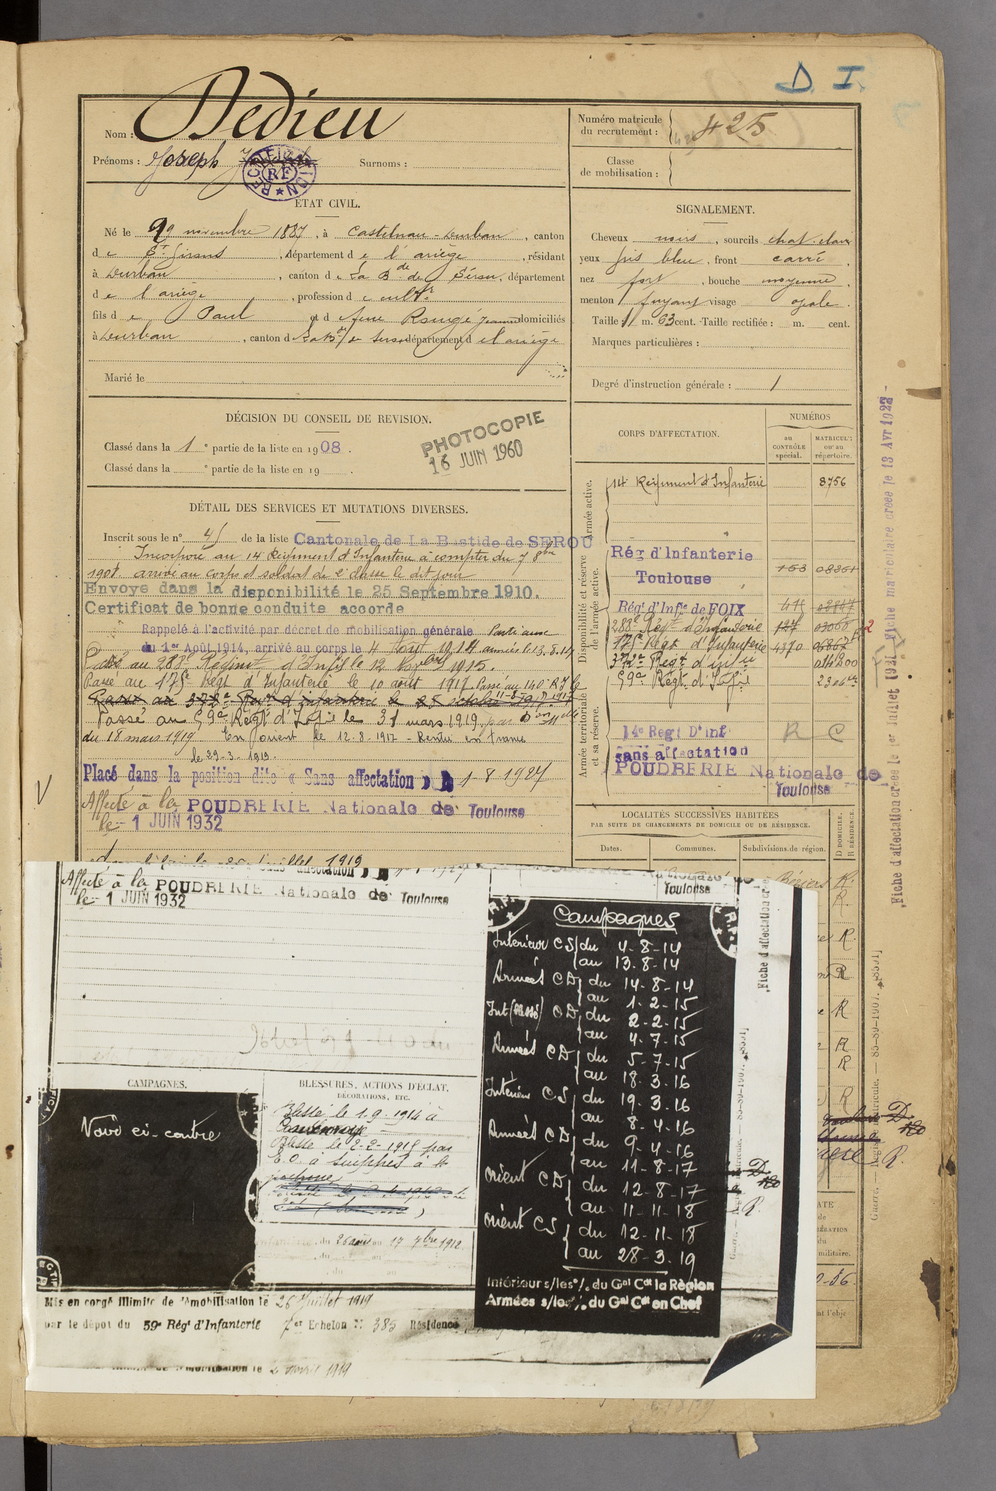 D I.
Nom : Dedieu
Prénoms : Joseph
Surnoms :
RECTIFICATION RF
Numéro matricule du recrutement : 425
Classe de mobilisation :
ÉTAT CIVIL.
Né le 29 novembre 1887, à Castelnau-Durban, canton
de St Girons, département de l'ariège, résidant
à Durban, canton de La Bde de Sérou, département
de l'ariège, profession de cultr.
fils de Paul et de feue Rougé Jeanne domiciliés
à Durban, canton de La Bde de Serou département de l'ariège
Marié le
SIGNALEMENT.
Cheveux noirs, sourcils chat. clairs
yeux gris bleu, front carré
nez fort, bouche moyenne
menton fuyant visage ovale.
Taille 1 m. 63 cent. Taille rectifiée : m. cent.
Marques particulières :
Degré d'instruction générale : 1
DÉCISION DU CONSEIL DE REVISION.
Classé dans la 1e partie de la liste en 1908.
Classé dans la e partie de la liste en 19 .
PHOTOCOPIE
16 JUIN 1960
DÉTAIL DES SERVICES ET MUTATIONS DIVERSES.
Inscrit sous le n° 45 de la liste Cantonale de La Bastide de SEROU
Incorporé au 14 Régiment d'Infanterie à compter du 7 8bre
1908. arrivé au corps et soldat de 2e classe le dit jour
Envoyé dans la disponibilité le 25 Septembre 1910.
Certificat de bonne conduite accordé
Rappelé à l'activité par décret de mobilisation générale Parti aux
du 1er Août 1914, arrivé au corps le 4 Août 1914 armées le 13.8.14
Passé au 288e Régiment d'Inf le 12
1915.
Passé au 175e Régt d'Infanterie le 10 août 1917 Passé au 140e R I le
Passé au 59e Régt d'Infie le 31 mars 1919, par
du 18 mars 1919. En Orient le 12-8-1917 - Rentré en France
le 29-3-1919.
Placé dans la position dite « Sans affectation » 1-8 1927
Affecté à la POUDRERIE Nationale de Toulouse
le 1 JUIN 1932
CORPS D'AFFECTATION.
NUMÉROS
au CONTRÔLE spécial.
MATRICULE ou au répertoire.
Armée active.
14 Régiment d'Infanterie 8756
Disponibilité et réserve de l'armée active.
Rég d'Infanterie
Toulouse
Régt d'Infie de FOIX
288e Régt d'Infanterie
175e Régt d'Infanterie 4370
372e Régt d'infie
59e Régt d'Infie
Armée territoriale et sa réserve.
14e Regt D'inf R C
sans affectation
POUDRERIE Nationale de
Toulouse
LOCALITÉS SUCCESSIVES HABITÉES
PAR SUITE DE CHANGEMENTS DE DOMICILE OU DE RÉSIDENCE.
Dates.
Communes.
Subdivisions de région.
D DOMICILE. R RÉSIDENCE.
Béziers R
Fiche d'affectation créée le 1er Juillet 1921 - Fiche matriculaire créée le 13 Avr 1922 -
Affecté à la POUDRERIE Nationale de Toulouse
le 1 JUIN 1932
Toulouse
CAMPAGNES.
Voir ci-contre
BLESSURES, ACTIONS D'ÉCLAT,
DÉCORATIONS, ETC.
Blessé le 1.9-1914 à
Blessé le 2-2-1915 par
E.O. à Suippes à
du 26 août au 17 7bre 1912
Campagnes
Intérieur CS du 4-8-14
au 13.8-14
Armées CD du 14-8-14
au 1-2-15
Int (Blessé) CD du 2-2-15
au 4-7-15
Armées CD du 5-7-15
au 18-3-16
Intérieur CS du 19-3-16
au 8-4-16
Armées CD du 9-4-16
au 11-8-17
Orient CD du 12-8-17
au 11-11-18
Orient CS du 12-11-18
au 28-3-19
Intérieur s/les % du Gal Ct la Région
Armées s/les % du Gal Ct en Chef
Mis en congé illimité de démobilisation le 26 Juillet 1919
par le dépôt du 59e Régt d'Infanterie 7er Echelon N° 385 Résidence